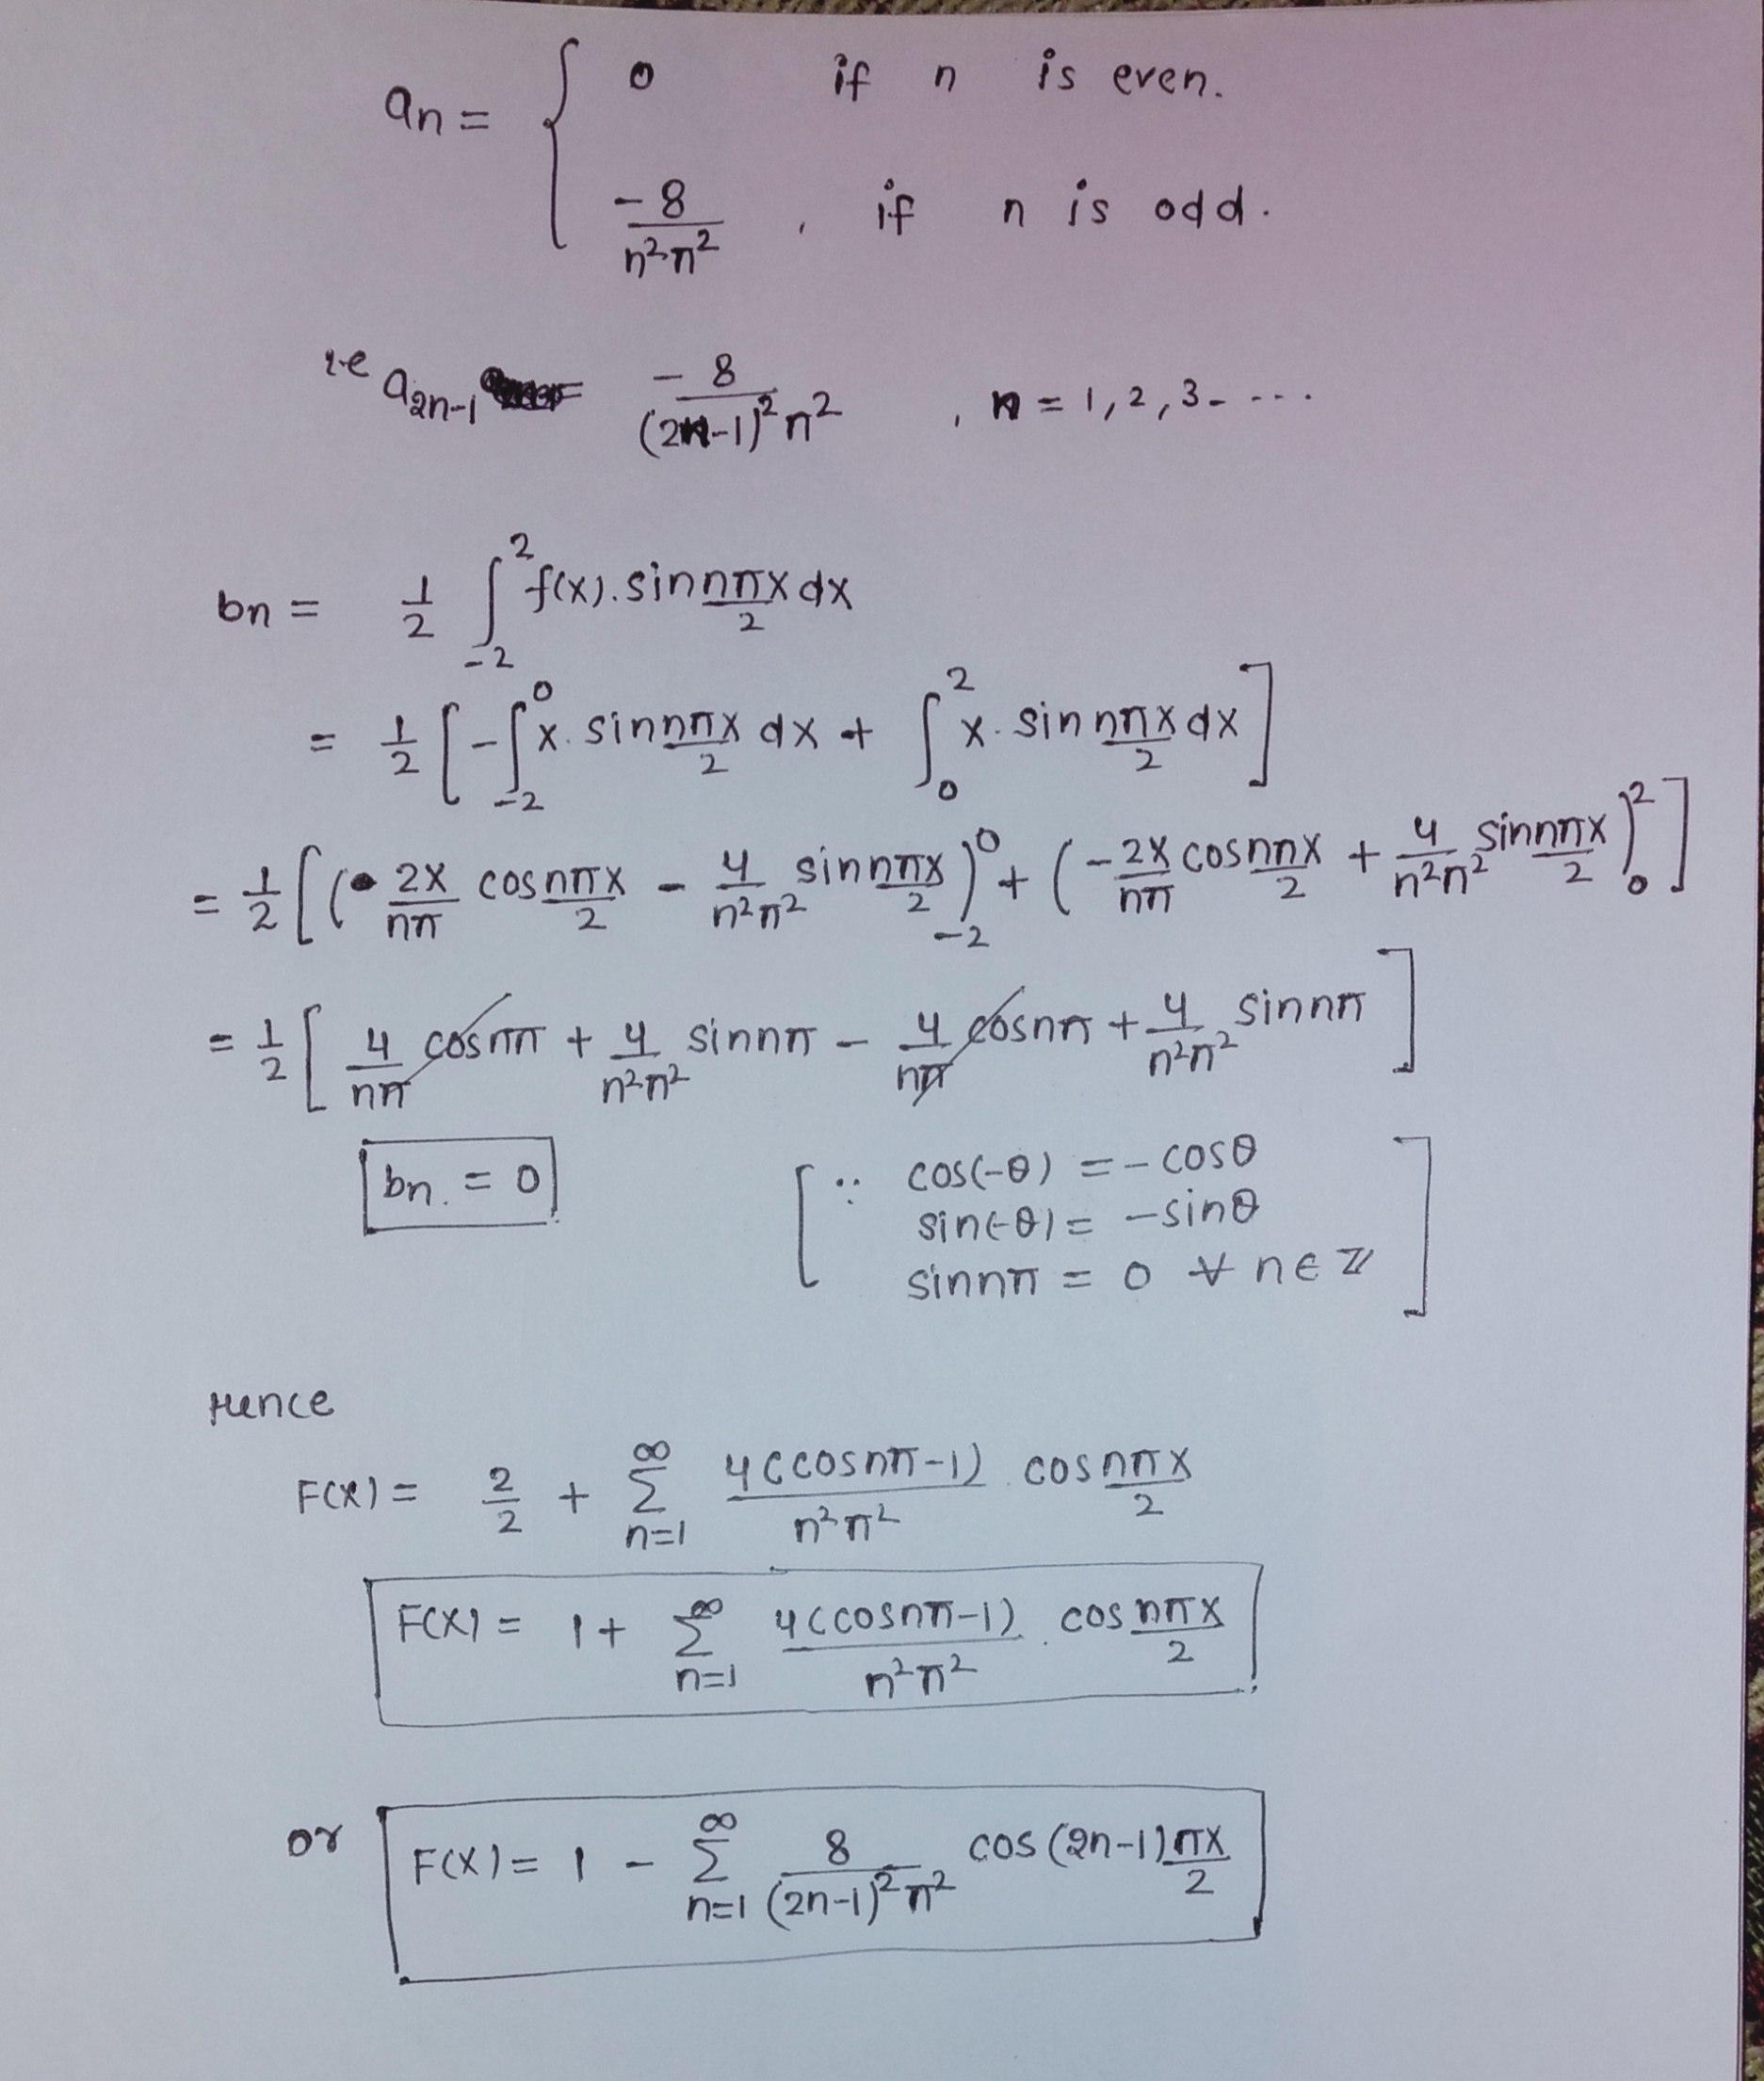 an = { 0 if n is even.
-8/n²π² , if n is odd.
i.e a2n-1 = -8/(2n-1)²π² , n = 1,2,3-...
bn = 1/2 ∫_{-2}^{2} f(x).sin nπx/2 dx
= 1/2 [ -∫_{-2}^{0} x. sin nπx/2 dx + ∫_{0}^{2} x. sin nπx/2 dx ]
= 1/2 [ ( 2x/nπ cos nπx/2 - 4/n²π² sin nπx/2 )_{-2}^{0} + ( -2x/nπ cos nπx/2 + 4/n²π² sin nπx/2 )_{0}^{2} ]
= 1/2 [ 4/nπ cosnπ + 4/n²π² sinnπ - 4/nπ cosnπ + 4/n²π² sinnπ ]
bn. = 0 [ ∵ cos(-θ) = -cosθ
sin(-θ) = -sinθ
sinnπ = 0 ∀ n∈ℤ ]
Hence
F(x) = 2/2 + ∑_{n=1}^{∞} 4(cosnπ-1)/n²π² . cos nπx/2
F(x) = 1 + ∑_{n=1}^{∞} 4(cosnπ-1)/n²π² . cos nπx/2
or F(x) = 1 - ∑_{n=1}^{∞} 8/(2n-1)²π² cos (2n-1)πx/2